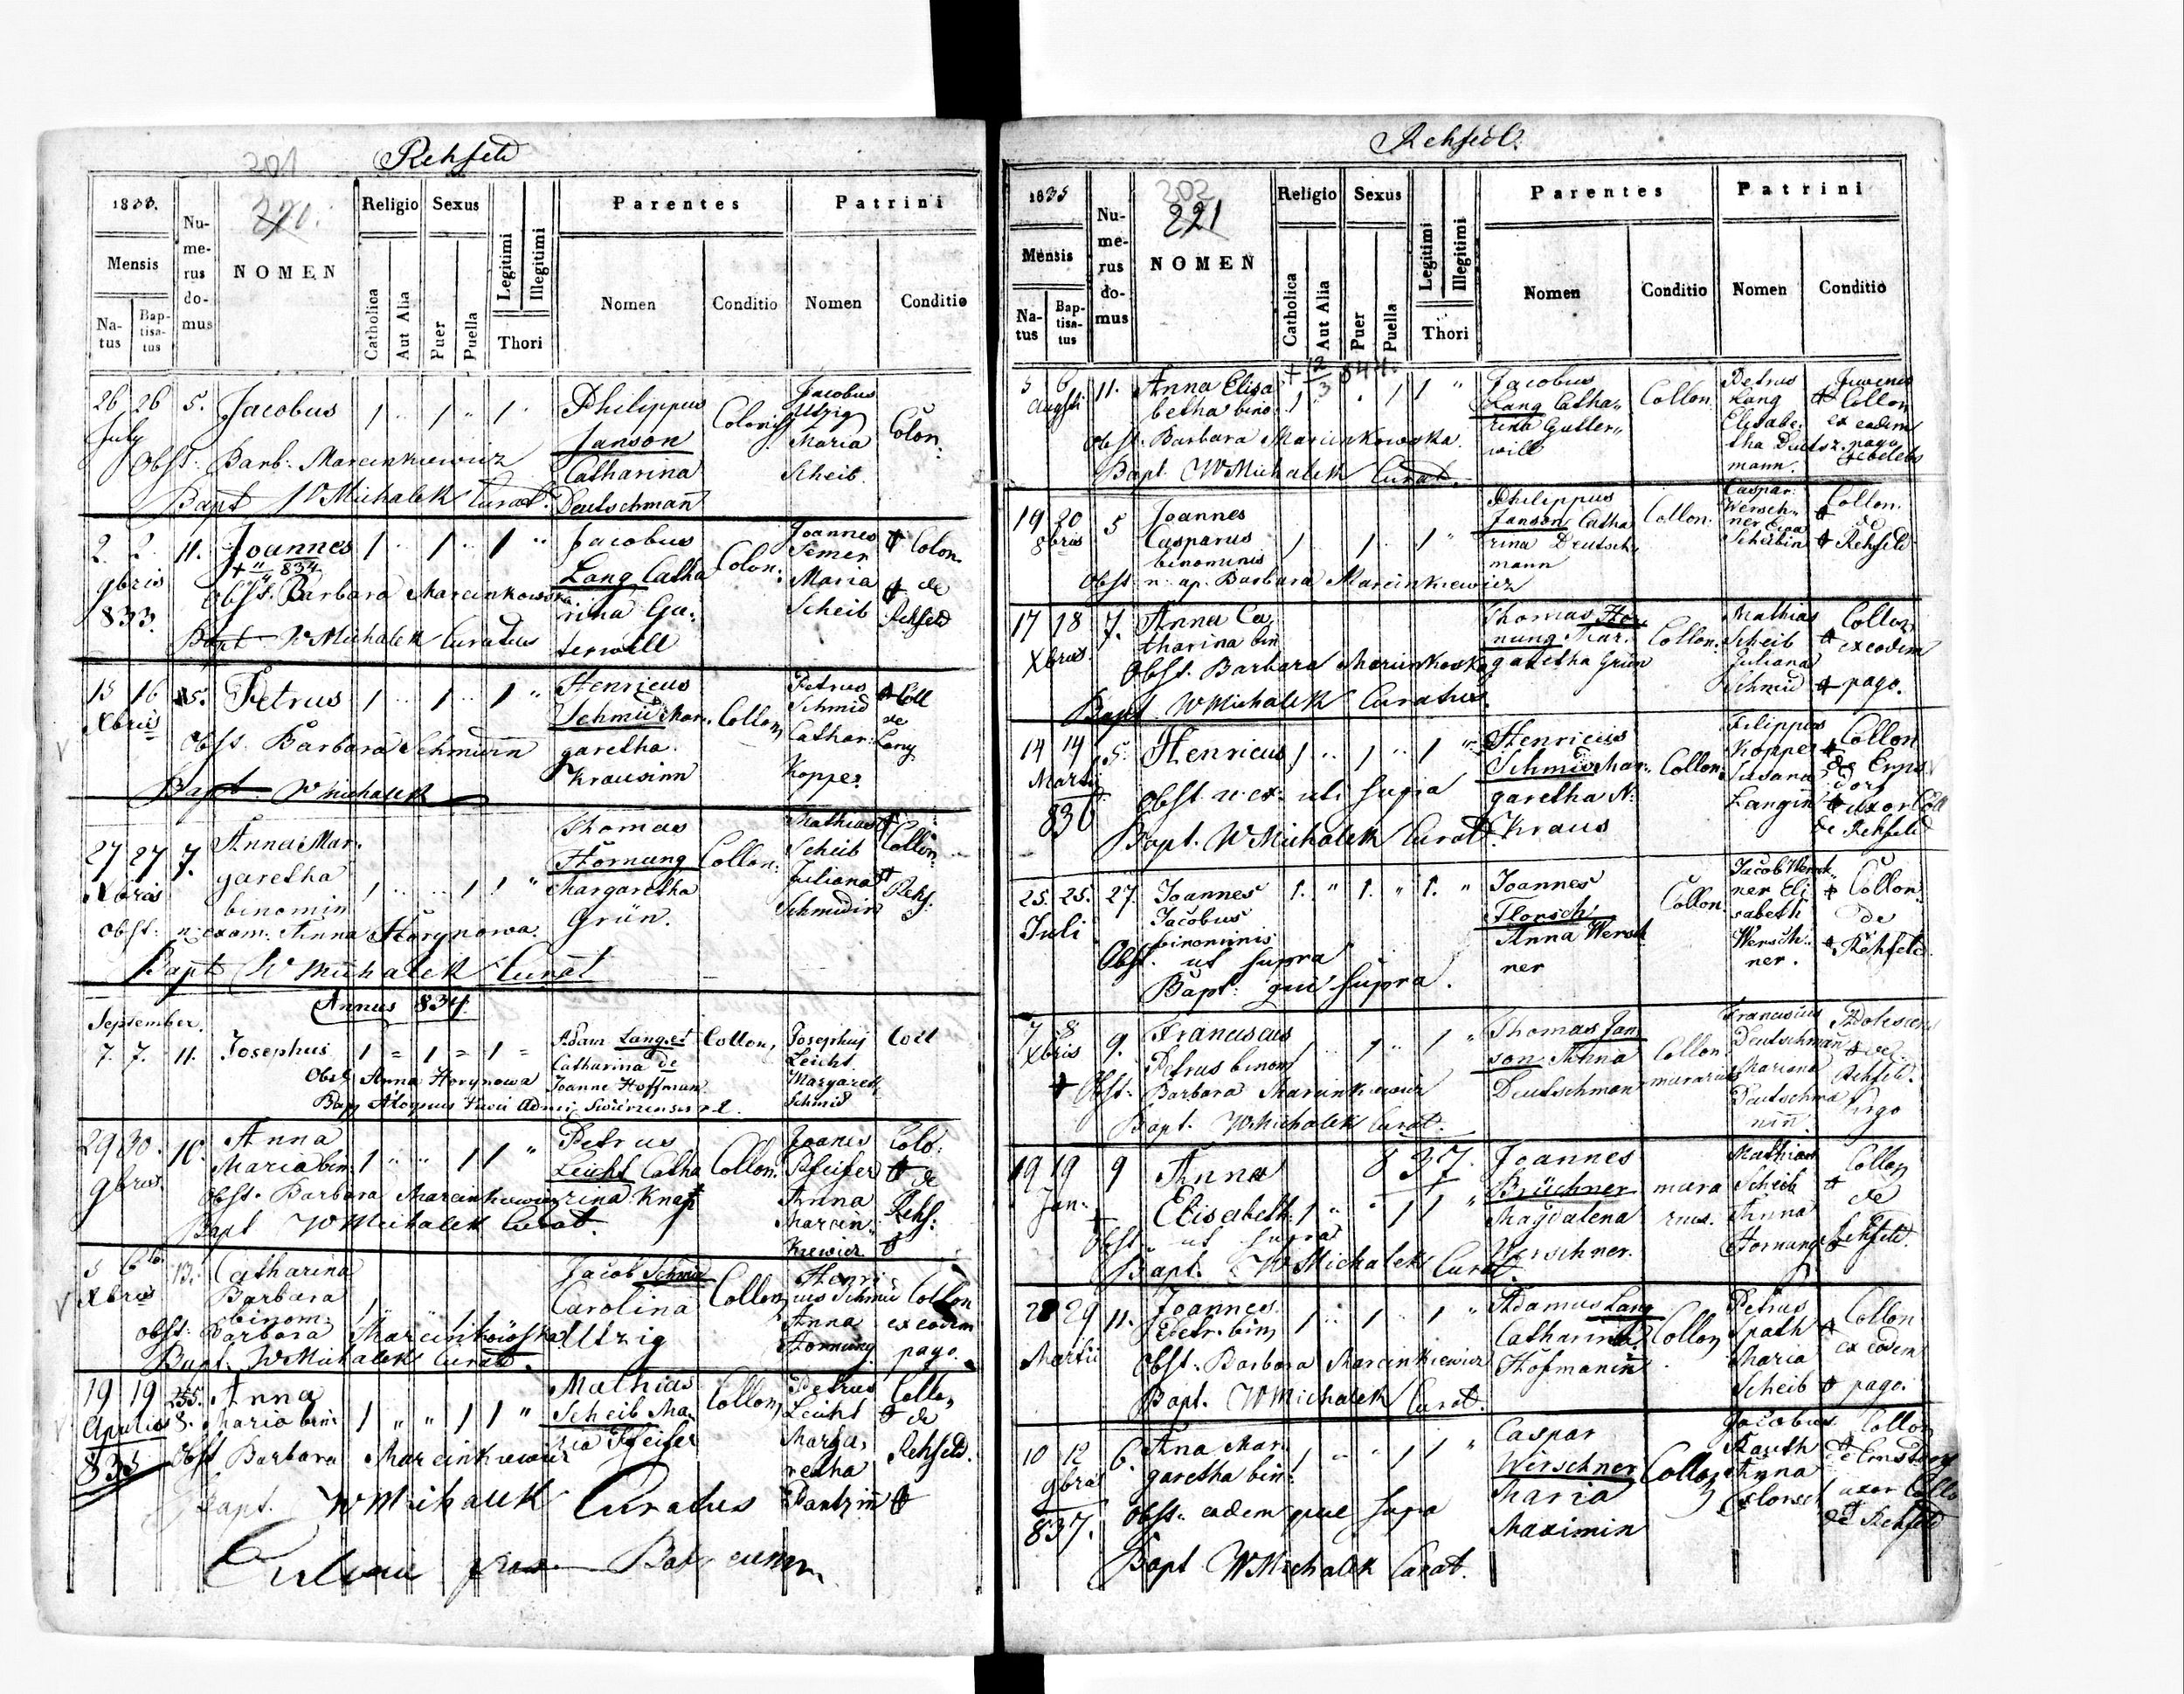 Rehfeld
201
220.
1833.
Mensis
Natus
Baptisatus
Numerus domus
NOMEN
Religio
Catholica
Aut Alia
Sexus
Puer
Puella
Legitimi
Illegitimi
Thori
Parentes
Nomen
Conditio
Patrini
Nomen
Conditio
26 26 5. Jacobus 1 " 1 " 1 " Philippus Jacobus
July Janson Colonis Utzig Colon.
Catharina Maria
Obst: Barb: Marcinkiewicz Deutschman̄ Scheib.
Bapt W Michalek Curat.
2. 2. 11. Joannes 1 " 1 " 1 " Jacobus Joannes Colon.
9bris + 11/4 834 Lang Catha Colon: Semer
833. Obst. Barbara Marcinkowska rina Gu: Maria de
Bapt W Michalek Curatus terwill Scheib Rehfeld
15 16 5. Petrus 1 " 1 " 1 " Henricus Petrus Coll
Xbris Schmid Mar. Collon Schmid de
Obst. Barbara Schmidin̄ garetha Cathar: Lany
Bapt. W Michalek Krausinn Kopper
27 27 7. Anna Mar. Thomas Mathias
Xbris garetha 1 " " 1 1 " Hornung Collon: Scheib Collon.
binomin Margaretha Juliana Rehf:
Obst: n: exam: Anna Horynowa. Grün. Schmidin
Bapt W Michalek Curat
Annus 834.
September.
7. 7. 11. Josephus 1 = 1 = 1 = Adam Lang et Collon, Josephus Coll
Catharina de Leicht
Obst Anna Horynowa Joanne Hoffman Margareth
Bap Aloysius Schmid
29 30. 10. Anna Petrus Joanes Colo:
9bris. Maria bin: 1 " " 1 1 " Leicht Catha Collon: Pfeifer de
Obst. Barbara Marcinkiewicz rina Knap Anna Rehf:
Bapt W Michalek Curat. Marcin:
kiewicz
5 6to 13. Catharina Jacob Schmid Henri
Xbris Barbara Carolina Collon, cus Schmid Collon
binom: 1 " " 1 1 Utzig Anna ex eodem
Obst: Barbara Marcinkowska Hornung pago.
Bapt. W Michalek Curat.
19 19 8. Anna Mathias Petrus Collo,
Aprilis Maria bin: 1 " " 1 1 " Scheib Ma. Collon, Leicht de
835 Obst Barbara Marcinkiewicz ria Pfeifer Marga, Rehfeld.
Bapt. W Michalek Curatus retha
Rehfeld.
202
221
1835
Mensis
Natus
Baptisatus
Numerus domus
NOMEN
Religio
Catholica
Aut Alia
Sexus
Puer
Puella
Legitimi
Illegitimi
Thori
Parentes
Nomen
Conditio
Patrini
Nomen
Conditio
5 6 11. Anna Elisa + 12/3 844. Jacobus Petrus Juvenis
Augsti betha bino: 1 " 1 1 " Lang Catha" Collon. Lang Collon
Obst. Barbara Marcinkowska rina Gutter" Elisabe: ex eodem
Bapt. W Michalek Curat. will tha Deutsz: pago
mann.
19 20 5 Joannes Philippus Caspar Collon.
8bris Casparus 1 1 " 1 " Janson, Catha Collon. Wersch" de
binominis rina Deutsch: ner Eva Rehfeld
Obst. n: ap. Barbara Marcinkiewicz mann Scheibin
17 18 7. Anna Ca, Thomas Hor, Mathias Collon
Xbris. tharina bin nung Mar. Collon. Scheib ex eodem
Obst. Barbara Marcinkowska garetha Grün Juliana
Bapt W Michalek Curatus. Schmid pago.
14 14 5. Henricus 1 " 1 " 1 " Henricus Filippus Collon
Martii Schmid Mar: Collon: Kopper de Erns
836 Obst. n: ex: uti supra garetha N: Susana dorf
Bapt. W Michalek Curat. Kraus Langin uxor Coll
de Rehfeld
25. 25. 27. Joannes 1. " 1. " 1. " Joannes Jacob Wersch"
Juli Jacobus Florsch Collon. ner Eli Collon.
binominis Anna Wersch sabeth de
Obst. ut supra ner Wersch: Rehfeld
Bapt: qui supra. ner.
7 8 9. Franciscus Thomas Jan Franciscus Adolescen
Xbris Petrus binom 1 " 1 " 1 " son Anna Collon. Deutschman̄ de
Obst: Barbara Marcinkiewicz Deutschman murarius Mariana Rehfeld.
Bapt. W Michalek Curat. Deutschma Virgo
nin̄.
837.
19 19 9 Anna Joannes Mathias Collon
Jan. Elisabeth: 1 " " 1 1 " Brüchner mura Scheib de
Obst ut supra Magdalena rius. Anna Rehfeld.
Bapt. W Michalek Curat. Werschner. Hornung
28 29 11. Joannes Adamus Lang Petrus Collon
Martii Petr. bin, 1 " 1 " 1 " Catharina Collon Spath ex eodem
Obst. Barbara Marcinkiewicz Hofmanin̄ Maria
Bapt. W Michalek Curat. Scheib pago.
10 12 6. Ana Mar. Caspar Jacobus Collon
9bris garetha bin: 1 " " 1 1 " Werschner Collon Rauth de Ernsdorf
837. Obst. eadem que supra Maria Anna uxor Collo
Bapt W Michalek Curat. Maximin Florsch de Rehfeld